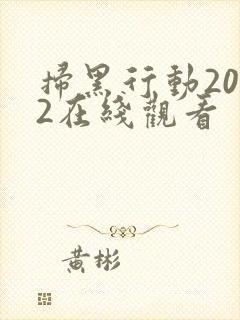 掃黑行動20
2在綫觀看
黃彬